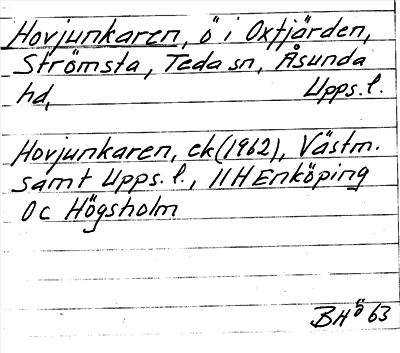 Hovjunkaren, ö i Oxfjärden,
Strömsta, Teda sn, Åsunda
hd, Upps.l.
Hovjunkaren, ek(1962), Västm.
samt Upps.l., 11H Enköping
0c Högsholm
BHÖ 63